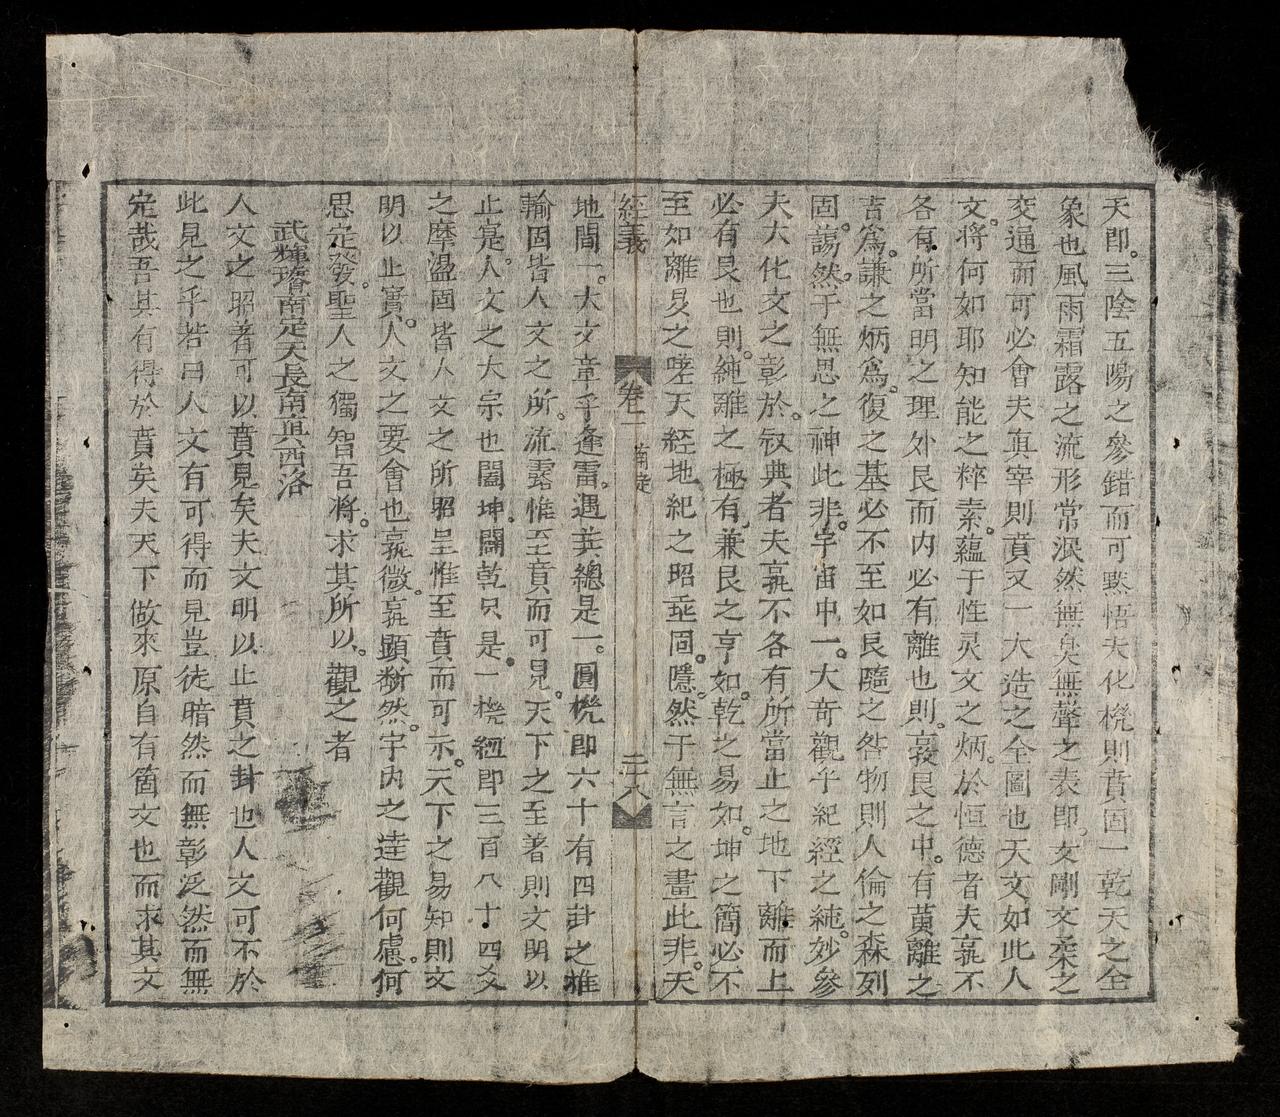 天即三陰五陽之參錯而可默悟夫化機則賁固一乾天之全
象也風雨霜露之流形常泯然無臭無聲之表即文剛文柔之
交通而可必會夫真宰則賁又一大造之全圖也天文如此人
文將何如耶知能之粹素蘊于性灵文之炳於恒德者夫孰不
各有所當明之理外艮而内必有離也則裒艮之中有黄離之
吉為謙之炳為復之基必不至如艮隨之咎物則人倫之森列
固藹然于無思之神此非宇宙中一大奇觀乎紀經之純妙參
夫大化文之彰於叙典者夫孰不各有所當止之地下離而上
必有艮也則純離之極有兼艮之亨如乾之易如坤之簡必不
至如離炅之嗟天經地紀之昭垂固隱然于無言之畫此非天
經義 卷二 南定 二十八
地間一大文章乎逢雷遇巽總是一圓機即六十有四卦之推
輸固皆人文之所流露惟至賁而可見天下之至著則文明以
止寔人文之大宗也闔坤闢乾只是一機紐即三百八十四爻
之摩盪固皆人文之所昭呈惟至賁而可示天下之易知則文
明以止實人文之要會也孰微孰顯斷然宇内之達觀何慮何
思定發聖人之獨智吾將求其所以觀之者
武輝瑨南定天長南真西洛
人文之昭著可以賁見矣夫文明以止賁之卦也人文可不於
此見之乎若曰人文有可得而見豈徒暗然而無彰泛然而無
定哉吾其有得於賁矣夫天下做來原自有箇文也而求其文